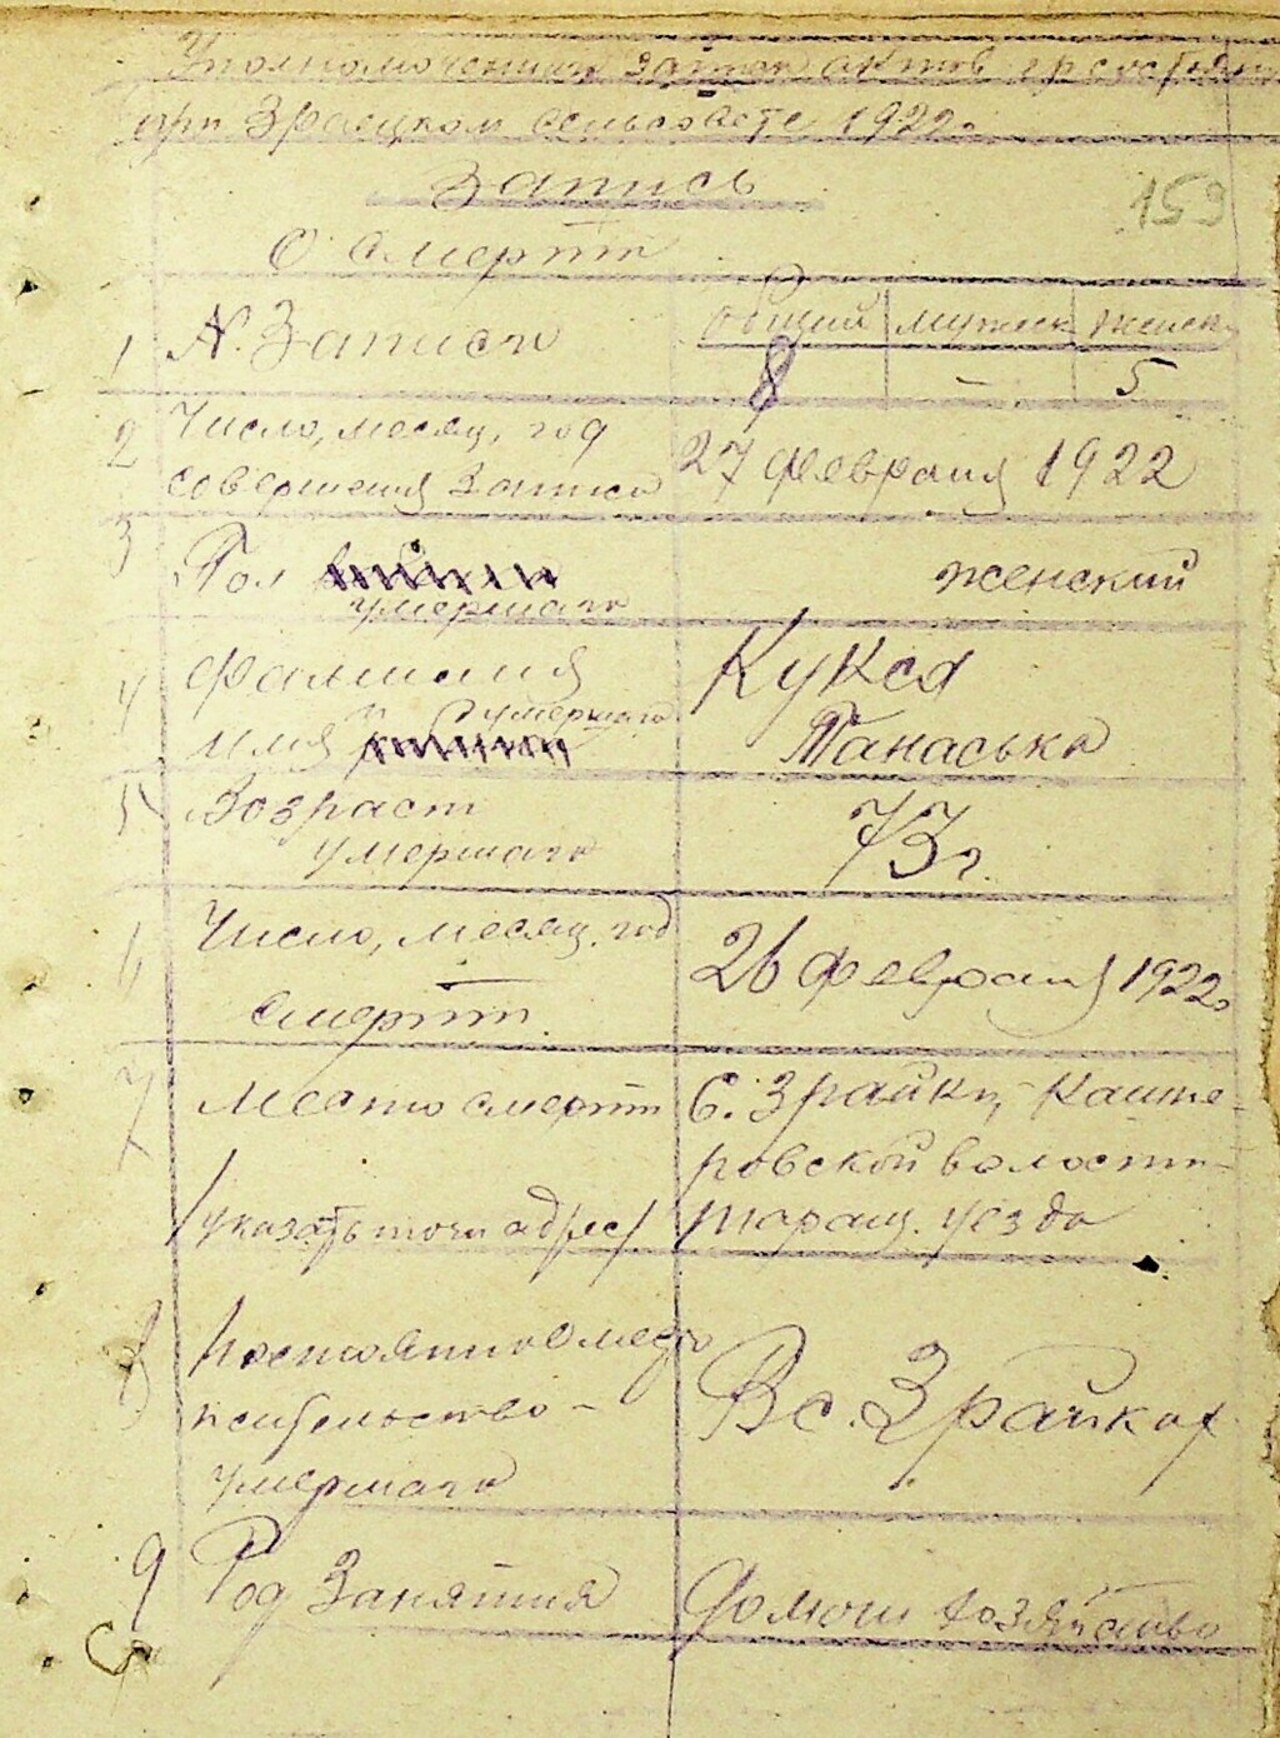 Уполномоченный запси актов гр состоян
при Зрайцком сельсовете 1922г.
Запись
159
О смерти
Общий Мужск Женск
1 N. Записи
8 – 5
2 Число, месяц, год 27 февраля 1922
совершения записи
3 Пол женский
умершаго
4 Фамилия Кукса
умершаго
имя Панаська
5 Возраст 73 г.
умершаго
6 Число, месяц, год 26 февраля 1922г.
смерти
7 Место смерти С. Зрайки, Каште-
ровской волости
/указать точн адрес/ Таращ. уезда
8 Постоянное место
жительство - В с. Зрайках
умершаго
9 Род Занятия Домош хозяйство